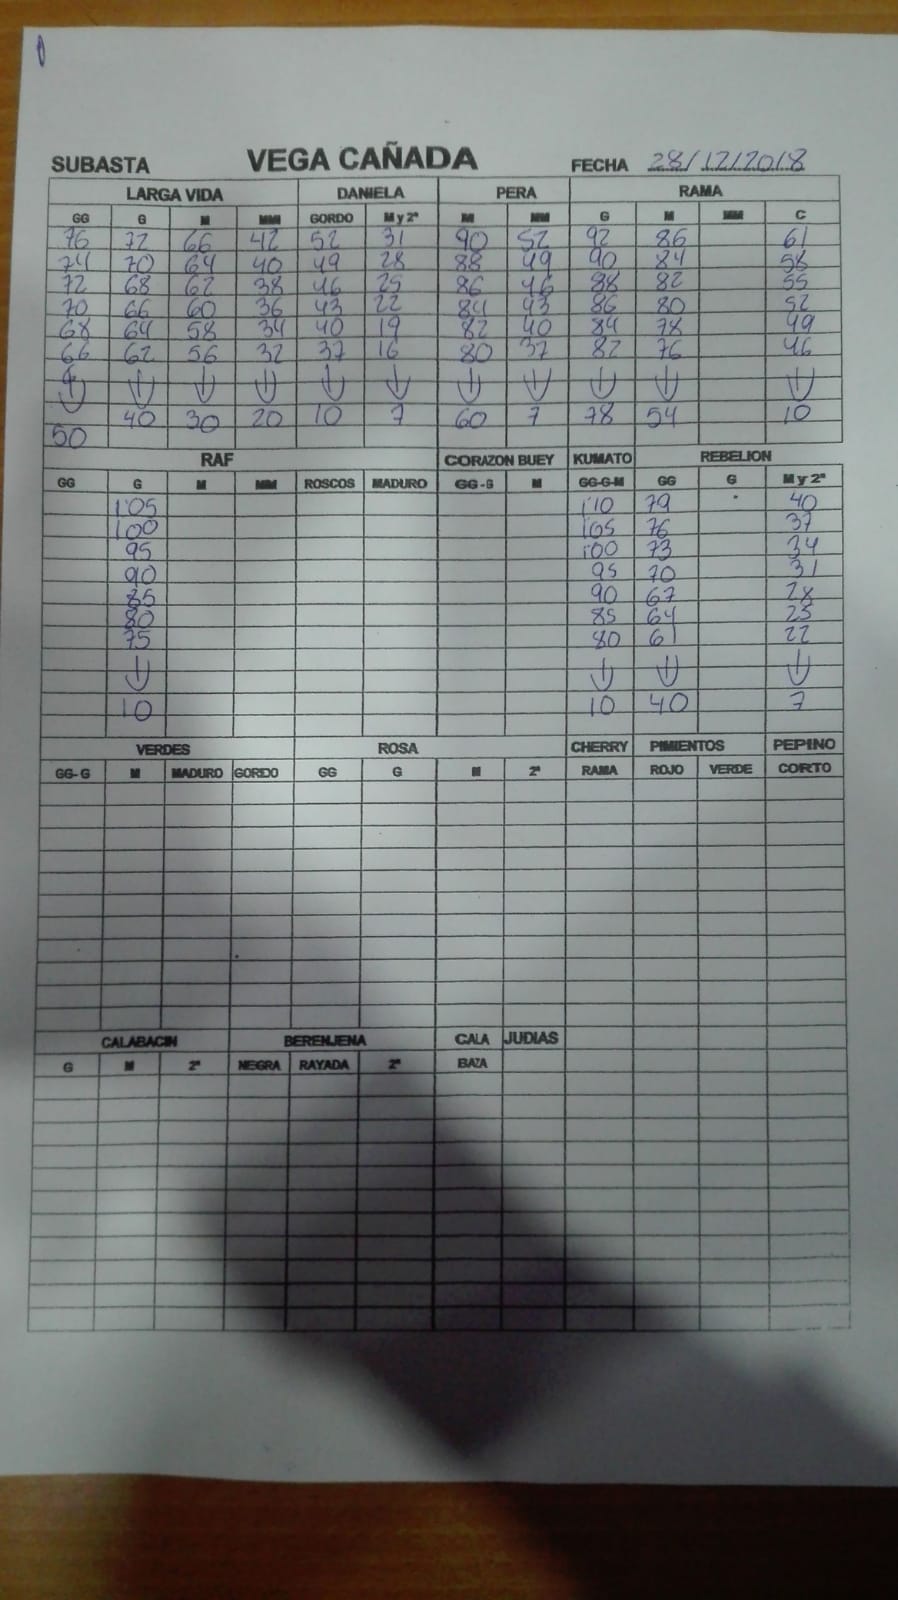 SUBASTA VEGA CAÑADA FECHA 28/12/2018
LARGA VIDA DANIELA PERA RAMA
GG G M MM GORDO M y 2ª M MM G M MM C
76 72 66 42 52 31 90 52 92 86 61
74 70 64 40 49 28 88 49 90 84 58
72 68 62 38 46 25 86 46 88 82 55
70 66 60 36 43 22 84 43 86 80 52
68 64 58 34 40 19 82 40 84 78 49
66 62 56 32 37 16 80 37 82 76 46
↓ ↓ ↓ ↓ ↓ ↓ ↓ ↓ ↓ ↓ ↓
50 40 30 20 10 7 60 7 78 54 10
RAF CORAZON BUEY KUMATO REBELION
GG G M MM ROSCOS MADURO GG-G M GG-G-M GG G M y 2ª
1'05 1'10 79 40
100 1'05 76 37
95 1'00 73 34
90 95 70 31
85 90 67 28
80 85 64 25
75 80 61 22
↓ ↓ ↓ ↓
10 10 40 7
VERDES ROSA CHERRY PIMIENTOS PEPINO
GG-G M MADURO GORDO GG G M 2ª RAMA ROJO VERDE CORTO
CALABACIN BERENJENA CALA JUDIAS
G M 2ª NEGRA RAYADA 2ª BAZA